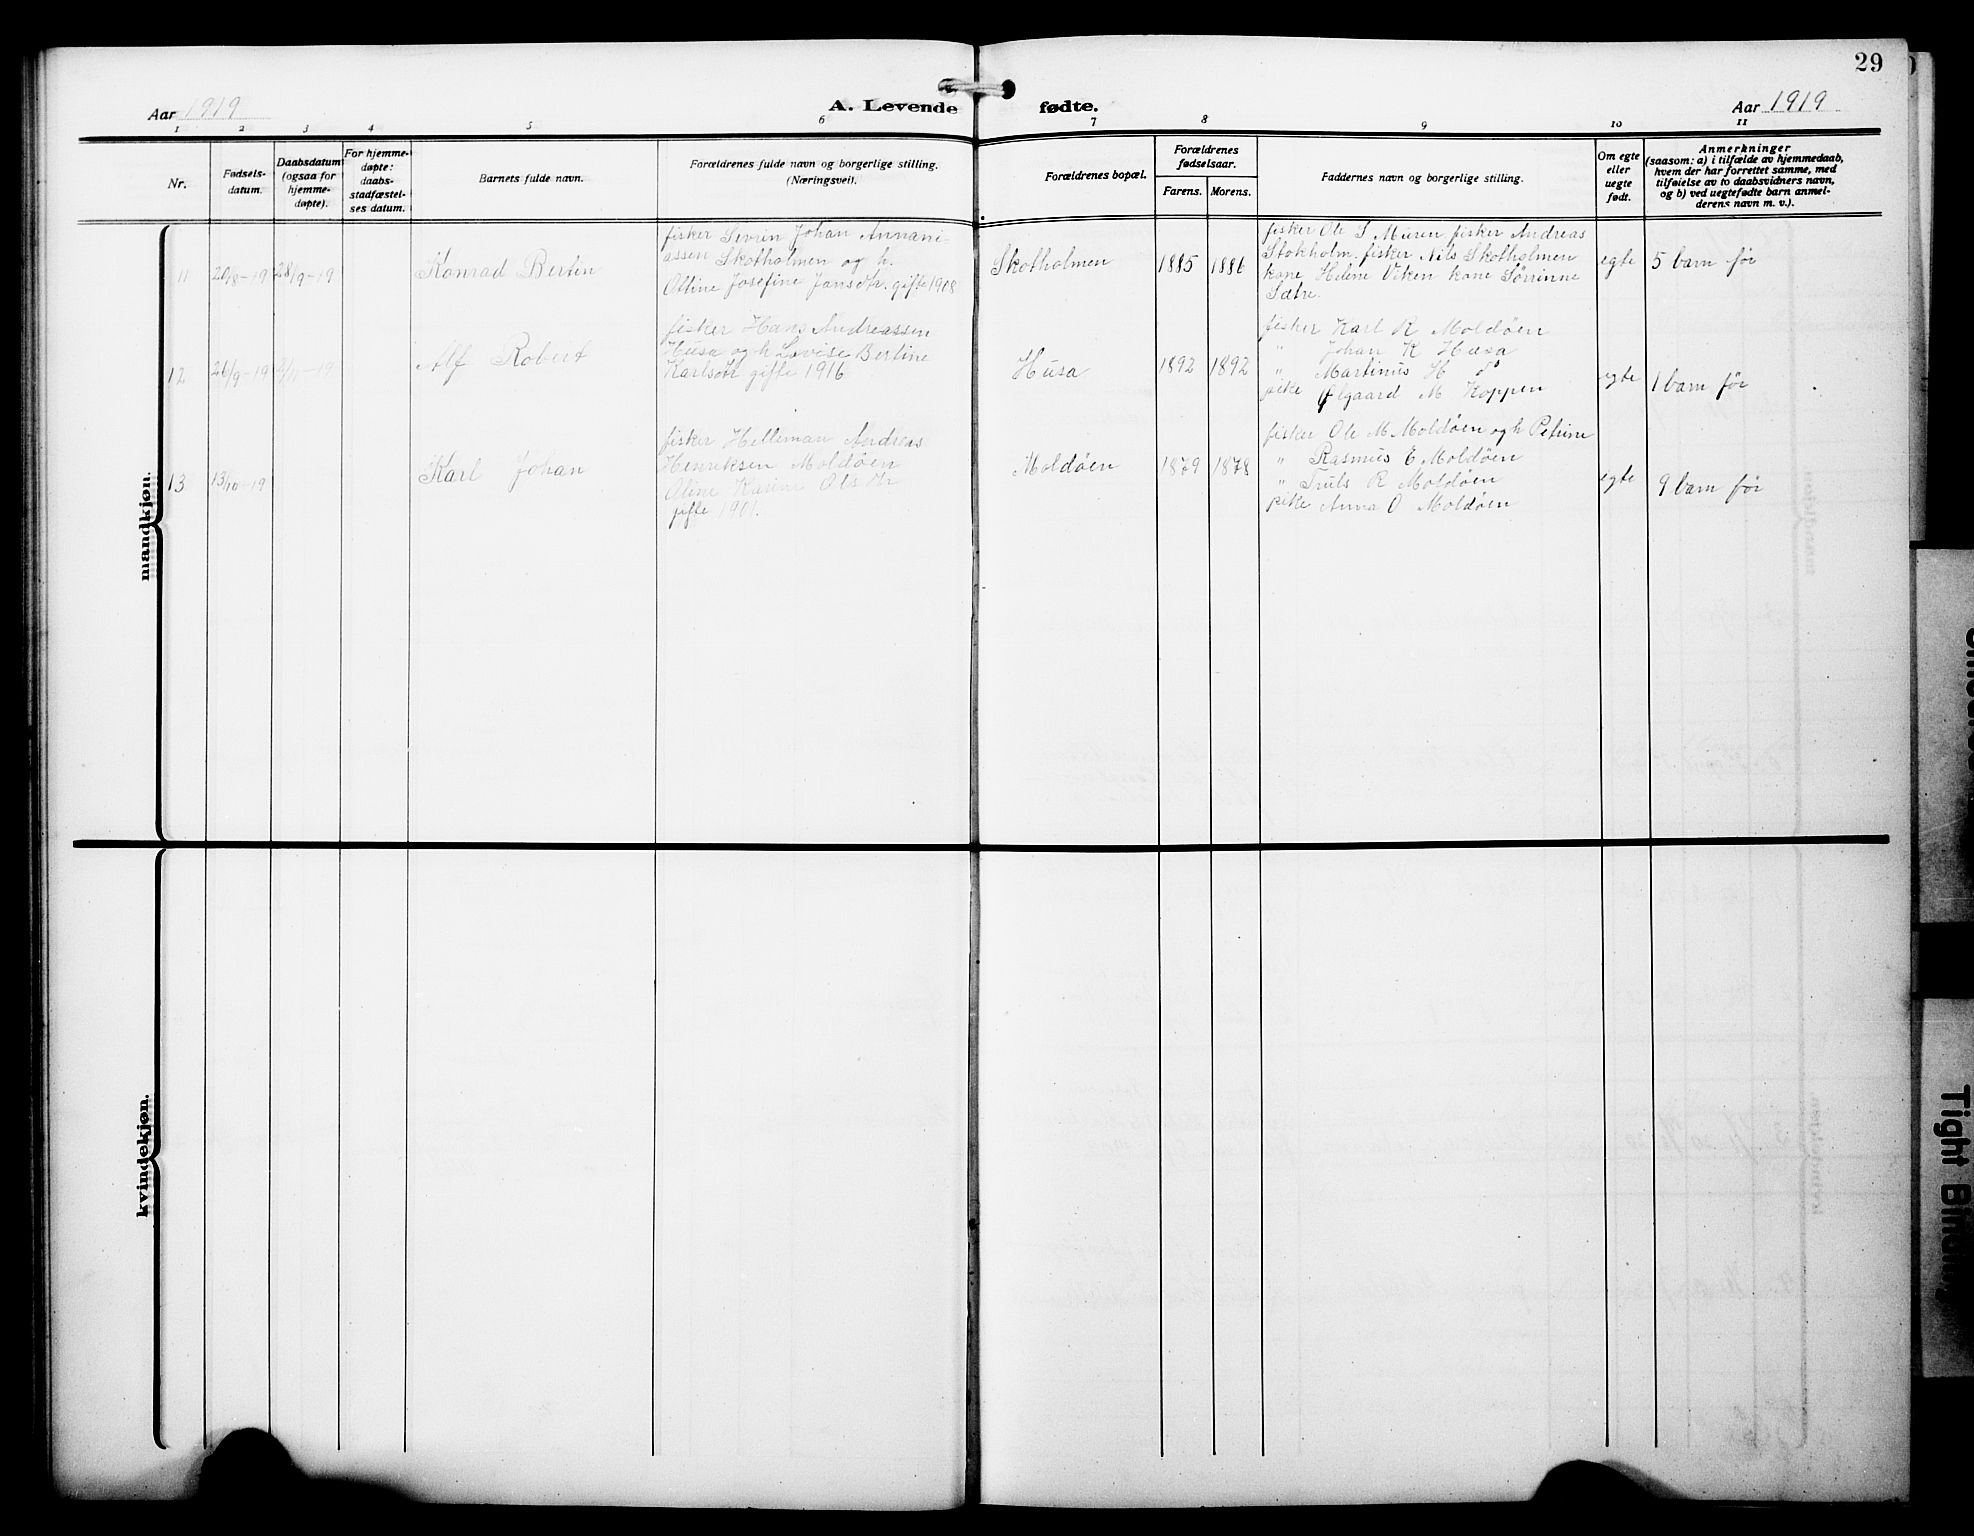 29
Aar 1919
A. Levende fødte.
Aar 1919
1 2 3 4 5 6 7 8 9 10 11
Nr.
Fødsels-
datum.
Daabsdatum
(ogsaa for
hjemme-
døpte).
For hjemme-
døpte:
daabs-
stadfæstel-
ses datum.
Barnets fulde navn.
Forældrenes fulde navn og borgerlige stilling.
(Næringsvei).
Forældrenes bopæl.
Forældrenes
fødselsaar.
Farens. Morens.
Faddernes navn og borgerlige stilling.
Om egte
eller
uegte
født.
Anmerkninger
(saasom: a) i tilfælde av hjemmedaab,
hvem der har forrettet samme, med
tilføielse av to daabsvidners navn,
og b) ved uegtefødte barn anmel-
derens navn m. v.).
mandkjøn.
11
20/8-19
28/9-19
Konrad Bertin
fisker Sevrin Johan Annani-
assen Skotholmen og h.
Oline Josefine Jansdtr. gifte 1908
Skotholmen
1885
1886
fisker Ole S Muren fisker Andreas
Stokholm. fisker Nils Skotholmen
kone Helene Viken kone Sørrinne
Sætre.
egte
5 barn før
12
26/9-19
2/11-19
Alf Robert
fisker Hans Andreassen
Husa og h Lovise Bertine
Karlsdtr gifte 1916
Husa
1892
1892
fisker Karl R Moldøen
" Johan K Husa
" Martinus H do
pike Olgaard M Koppen
egte
1 barn før
13
13/10-19
Karl Johan
fisker Helleman Andreas
Henriksen Moldøen
Oline Karine Olsdtr
gifte 1901.
Moldøen
1879
1878
fisker Ole M Moldøen og h Petrine
" Rasmus E Moldøen
" Truls R Moldøen
pike Anna O Moldøen
egte
9 barn før
kvindekjøn.
Tight Binding